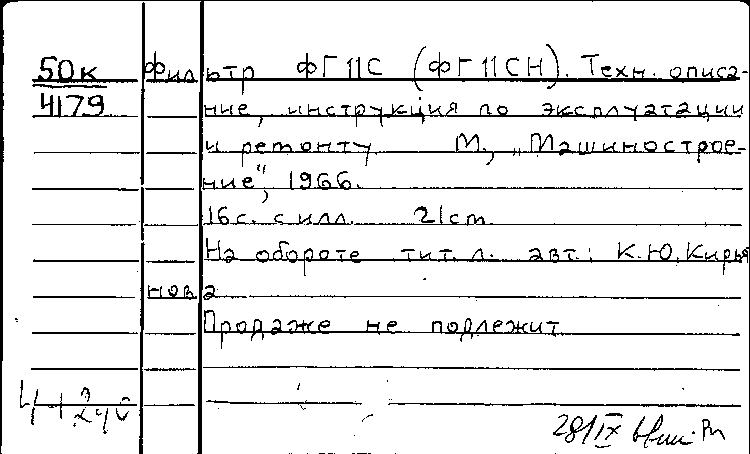 50к Фильтр ФГ11С (ФГ11СН). Техн. описа-
4179 ние, инструкция по эксплуатации
и ремонту М., „Машинострое-
ние", 1966.
16с. с илл. 21cm
На обороте тит. л. авт.: К.Ю. Кирья
нова
Продаже не подлежит
28/IX